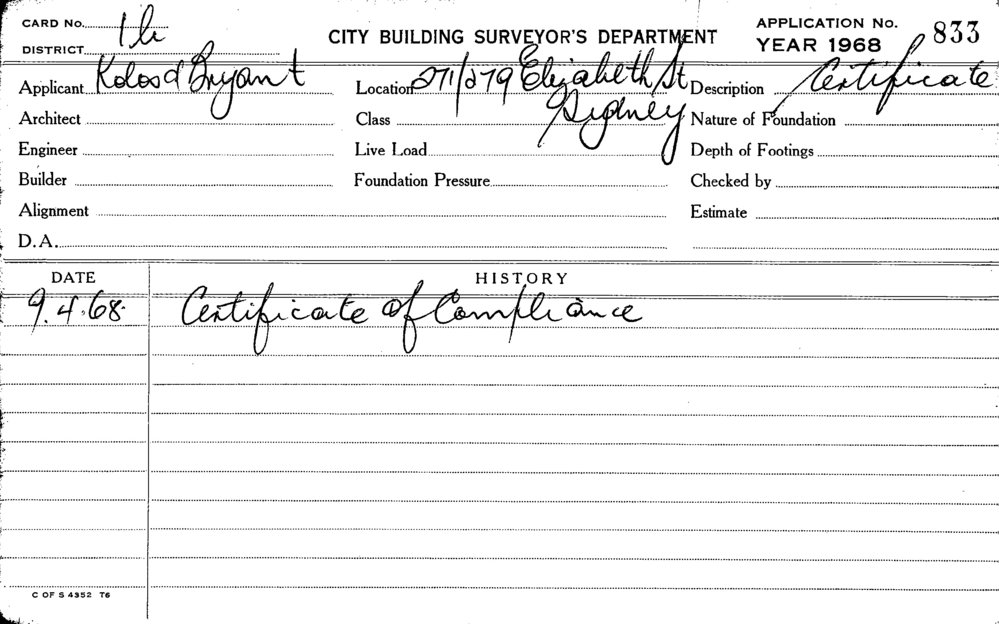 CARD No.
DISTRICT
CITY BUILDING SURVEYOR'S DEPARTMENT
APPLICATION No. 833
YEAR 1968
Applicant Kolos & Bryant
Location 271/279 Elizabeth St Sydney
Description Certificate
Architect
Class
Nature of Foundation
Engineer
Live Load
Depth of Footings
Builder
Foundation Pressure
Checked by
Alignment
Estimate
D.A.
DATE HISTORY
9.4.68. Certificate of Compliance
C OF S 4352 T6